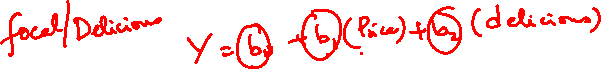 focel/Delicious Y = b₀ + b₁ (Price) + b₂ (delicious)